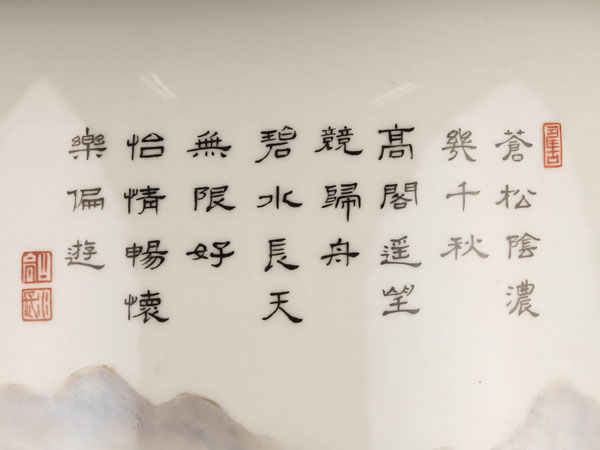 蒼松陰濃
幾千秋
髙閣遥望
競歸舟
碧水長天
無限好
怡情暢懷
樂偏遊